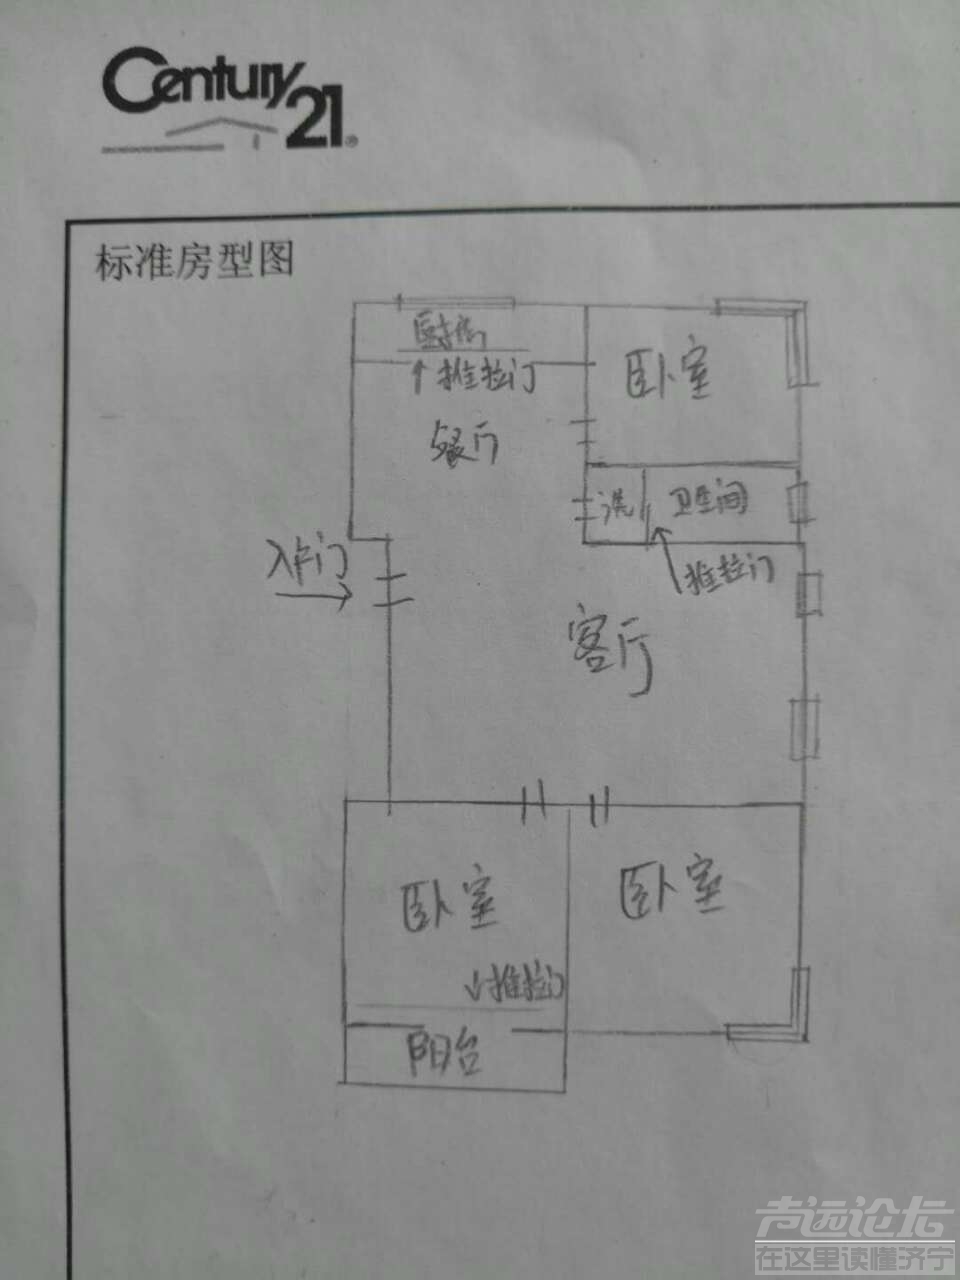 Century
21®
标准房型图
厨房
推拉门
卧室
餐厅
洗
卫生间
入户门
推拉门
客厅
卧室
卧室
推拉门
阳台
声远论坛
在这里读懂济宁